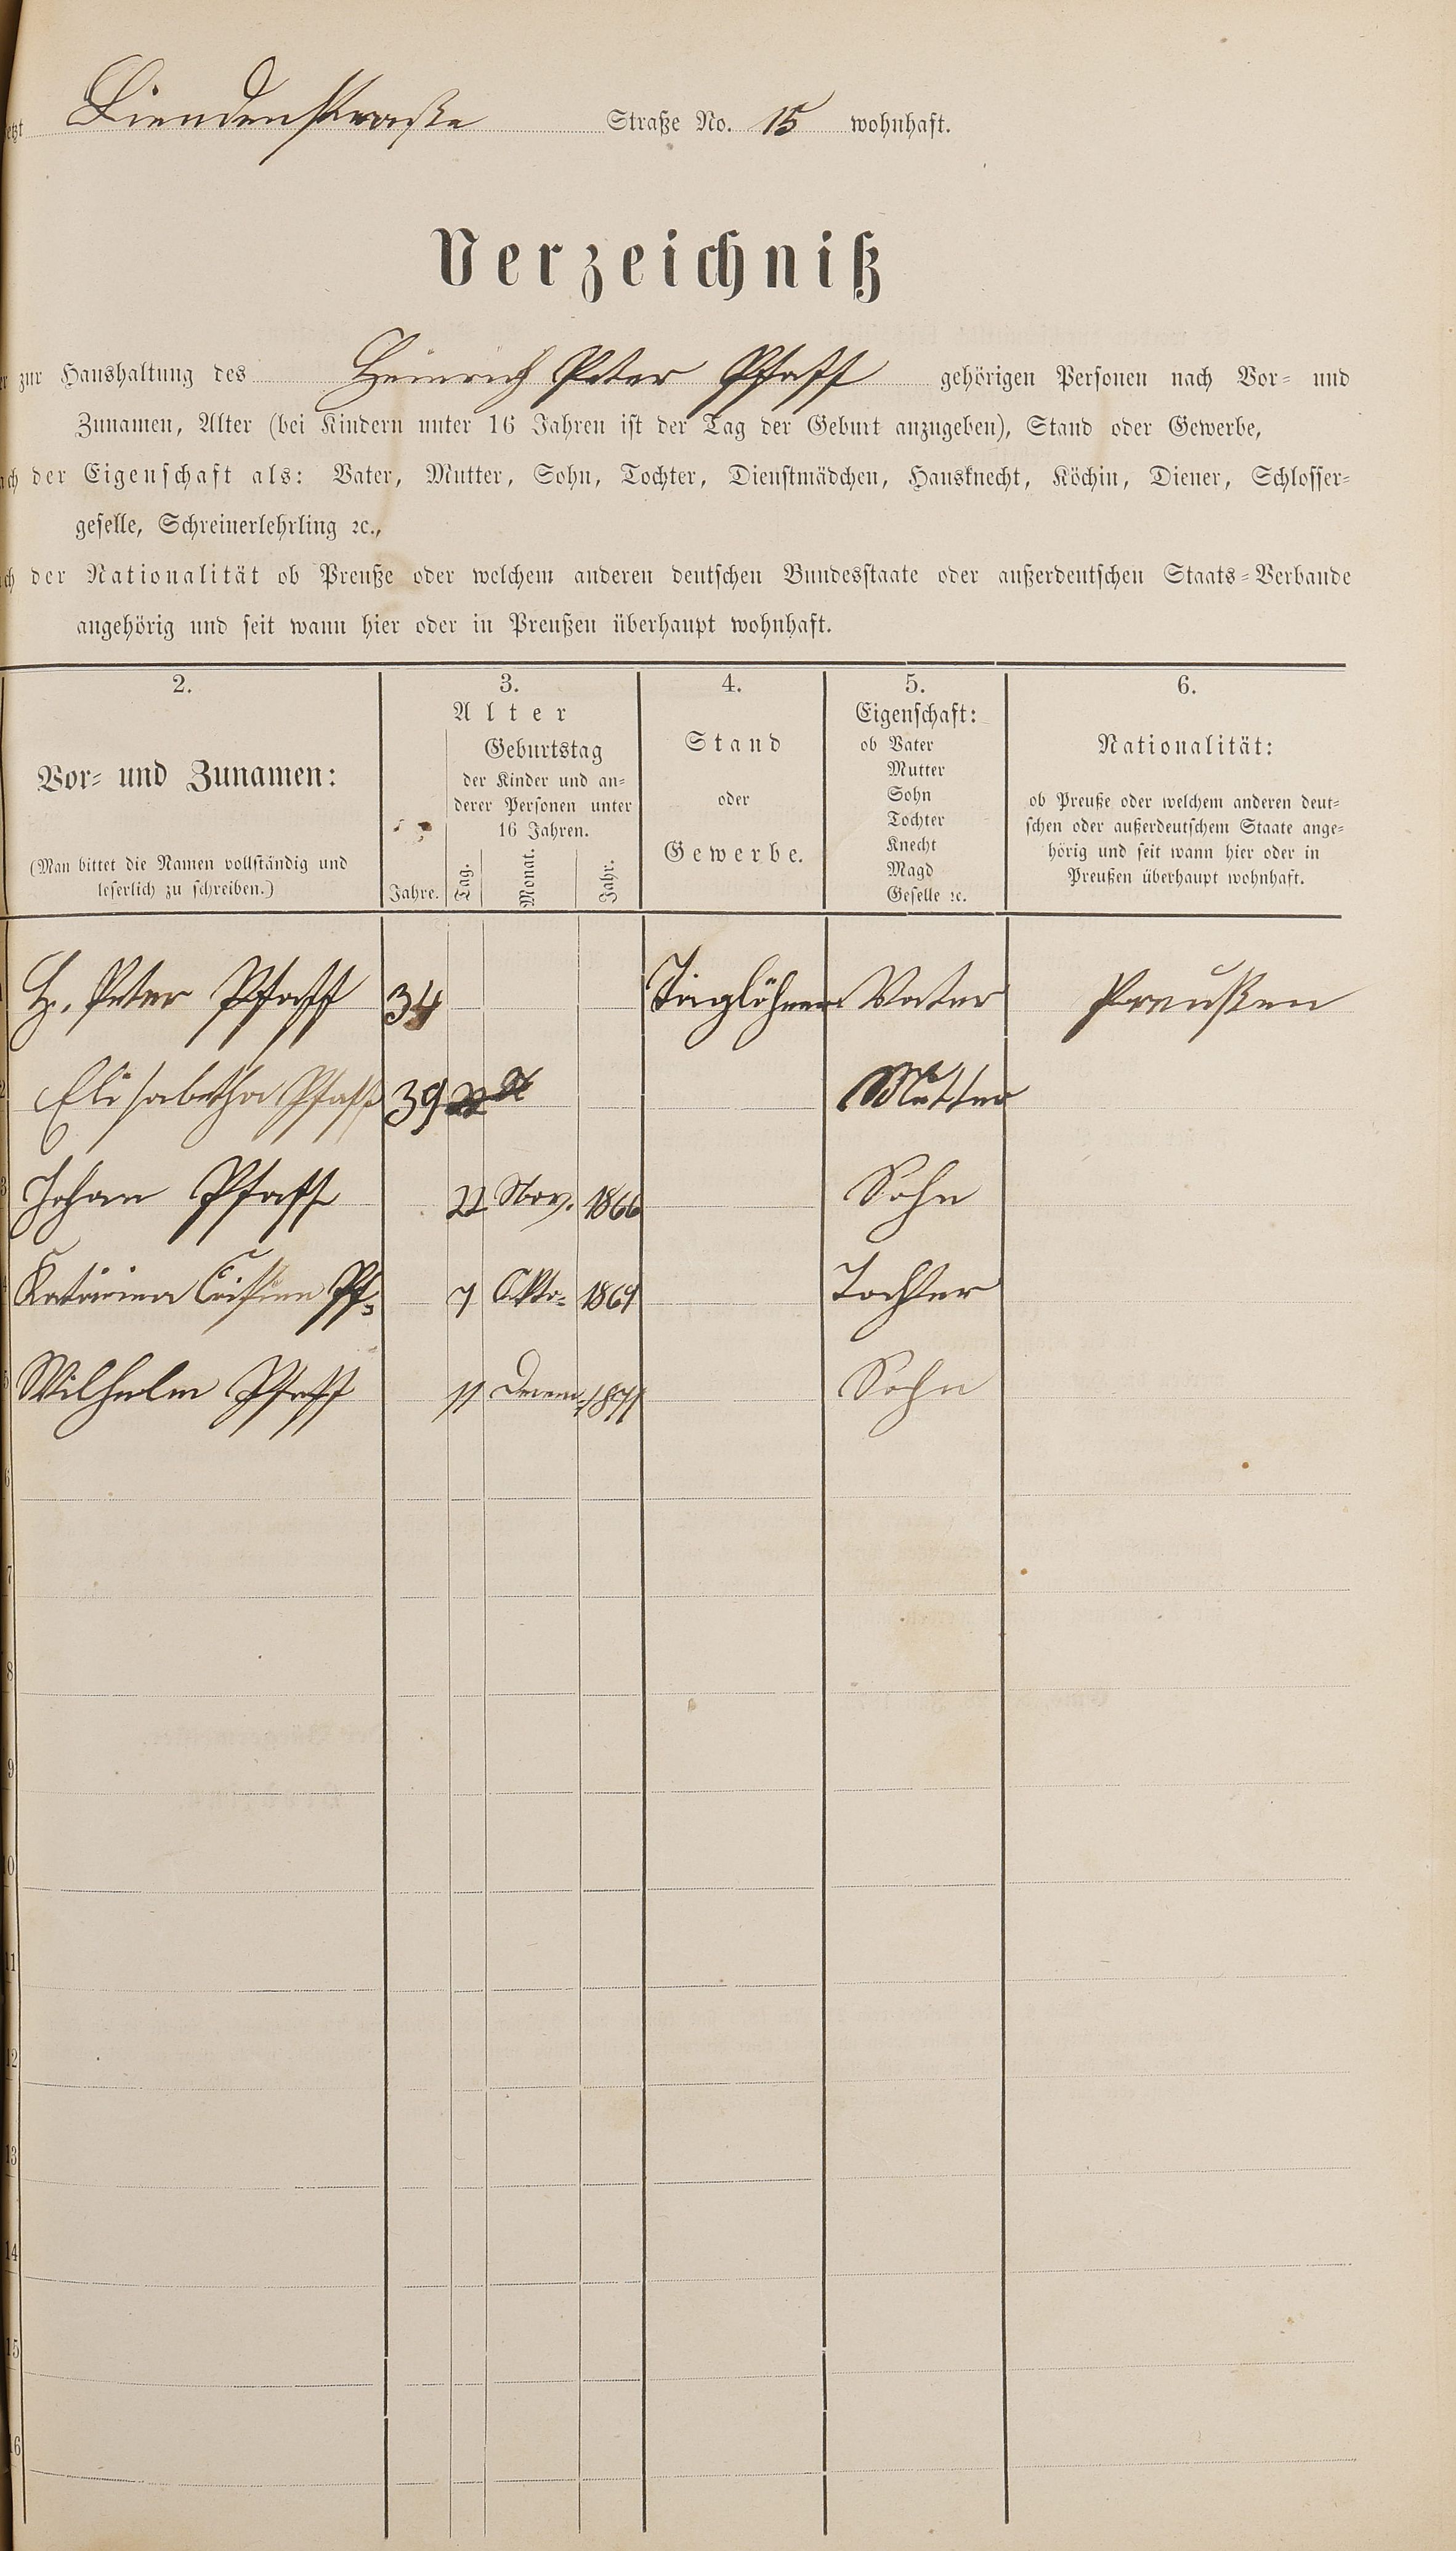 Liendenstraße Straße No. 15 wohnhaft.
Verzeichniß
zur Haushaltung des Heinrich Peter Pfaff gehörigen Personen nach Vor- und
Zunamen, Alter (bei Kindern unter 16 Jahren ist der Tag der Geburt anzugeben), Stand oder Gewerbe,
der Eigenschaft als: Vater, Mutter, Sohn, Tochter, Dienstmädchen, Hausknecht, Köchin, Diener, Schlosser-
geselle, Schreinerlehrling ꝛc.,
der Nationalität ob Preuße oder welchem anderen deutschen Bundesstaate oder außerdeutschen Staats-Verbande
angehörig und seit wann hier oder in Preußen überhaupt wohnhaft.
2.
Vor- und Zunamen:
(Man bittet die Namen vollständig und
leserlich zu schreiben.)
3.
Alter
Jahre.
Geburtstag
der Kinder und an-
derer Personen unter
16 Jahren.
Tag.
Monat.
Jahr.
4.
Stand
oder
Gewerbe.
5.
Eigenschaft:
ob Vater
Mutter
Sohn
Tochter
Knecht
Magd
Geselle ꝛc.
6.
Nationalität:
ob Preuße oder welchem anderen deut-
schen oder außerdeutschem Staate ange-
hörig und seit wann hier oder in
Preußen überhaupt wohnhaft.
H. Peter Pfaff 34 Taglöhner Vater Preußen
2 Elisabetha Pfaff 39 Mutter
3 Johan Pfaff 22 Nov. 1866 Sohn
Katarina Pf- 7 Okto- 1869 Tochter
5 Wilhelm Pfaff 11 Decem- 1871 Sohn
6
7
8
9
10
11
12
13
14
15
16